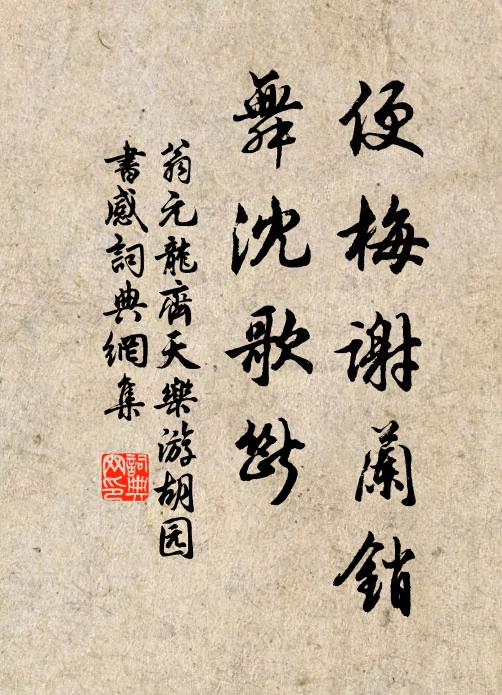 便梅谢蘭銷
舞沈歌断
翁元龍齊天樂游胡园
書感詞典網集
詞典网印